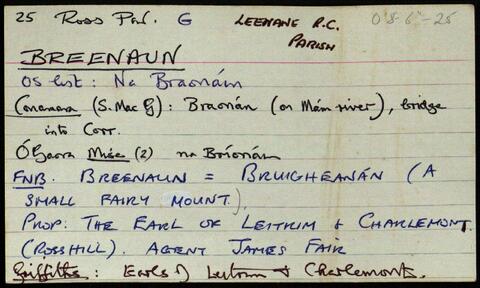 25 Ross Par. G LEENANE R.C. PARISH 086-25
BREENAUN
OS list: Na Braonáin
Conamara (S. Mac G): Braonán (on Mám river), bridge
into Corr.
Ó Gaora Mise (2) na Bríonáin
FNB. BREENAUN = BRUIGHEANÁN (A
SMALL FAIRY MOUNT).
PROP. THE EARL OF LEITRIM & CHARLEMONT.
(ROSSHILL). AGENT JAMES FAIR
Griffiths: Earls of Leitrim & Charlemont.